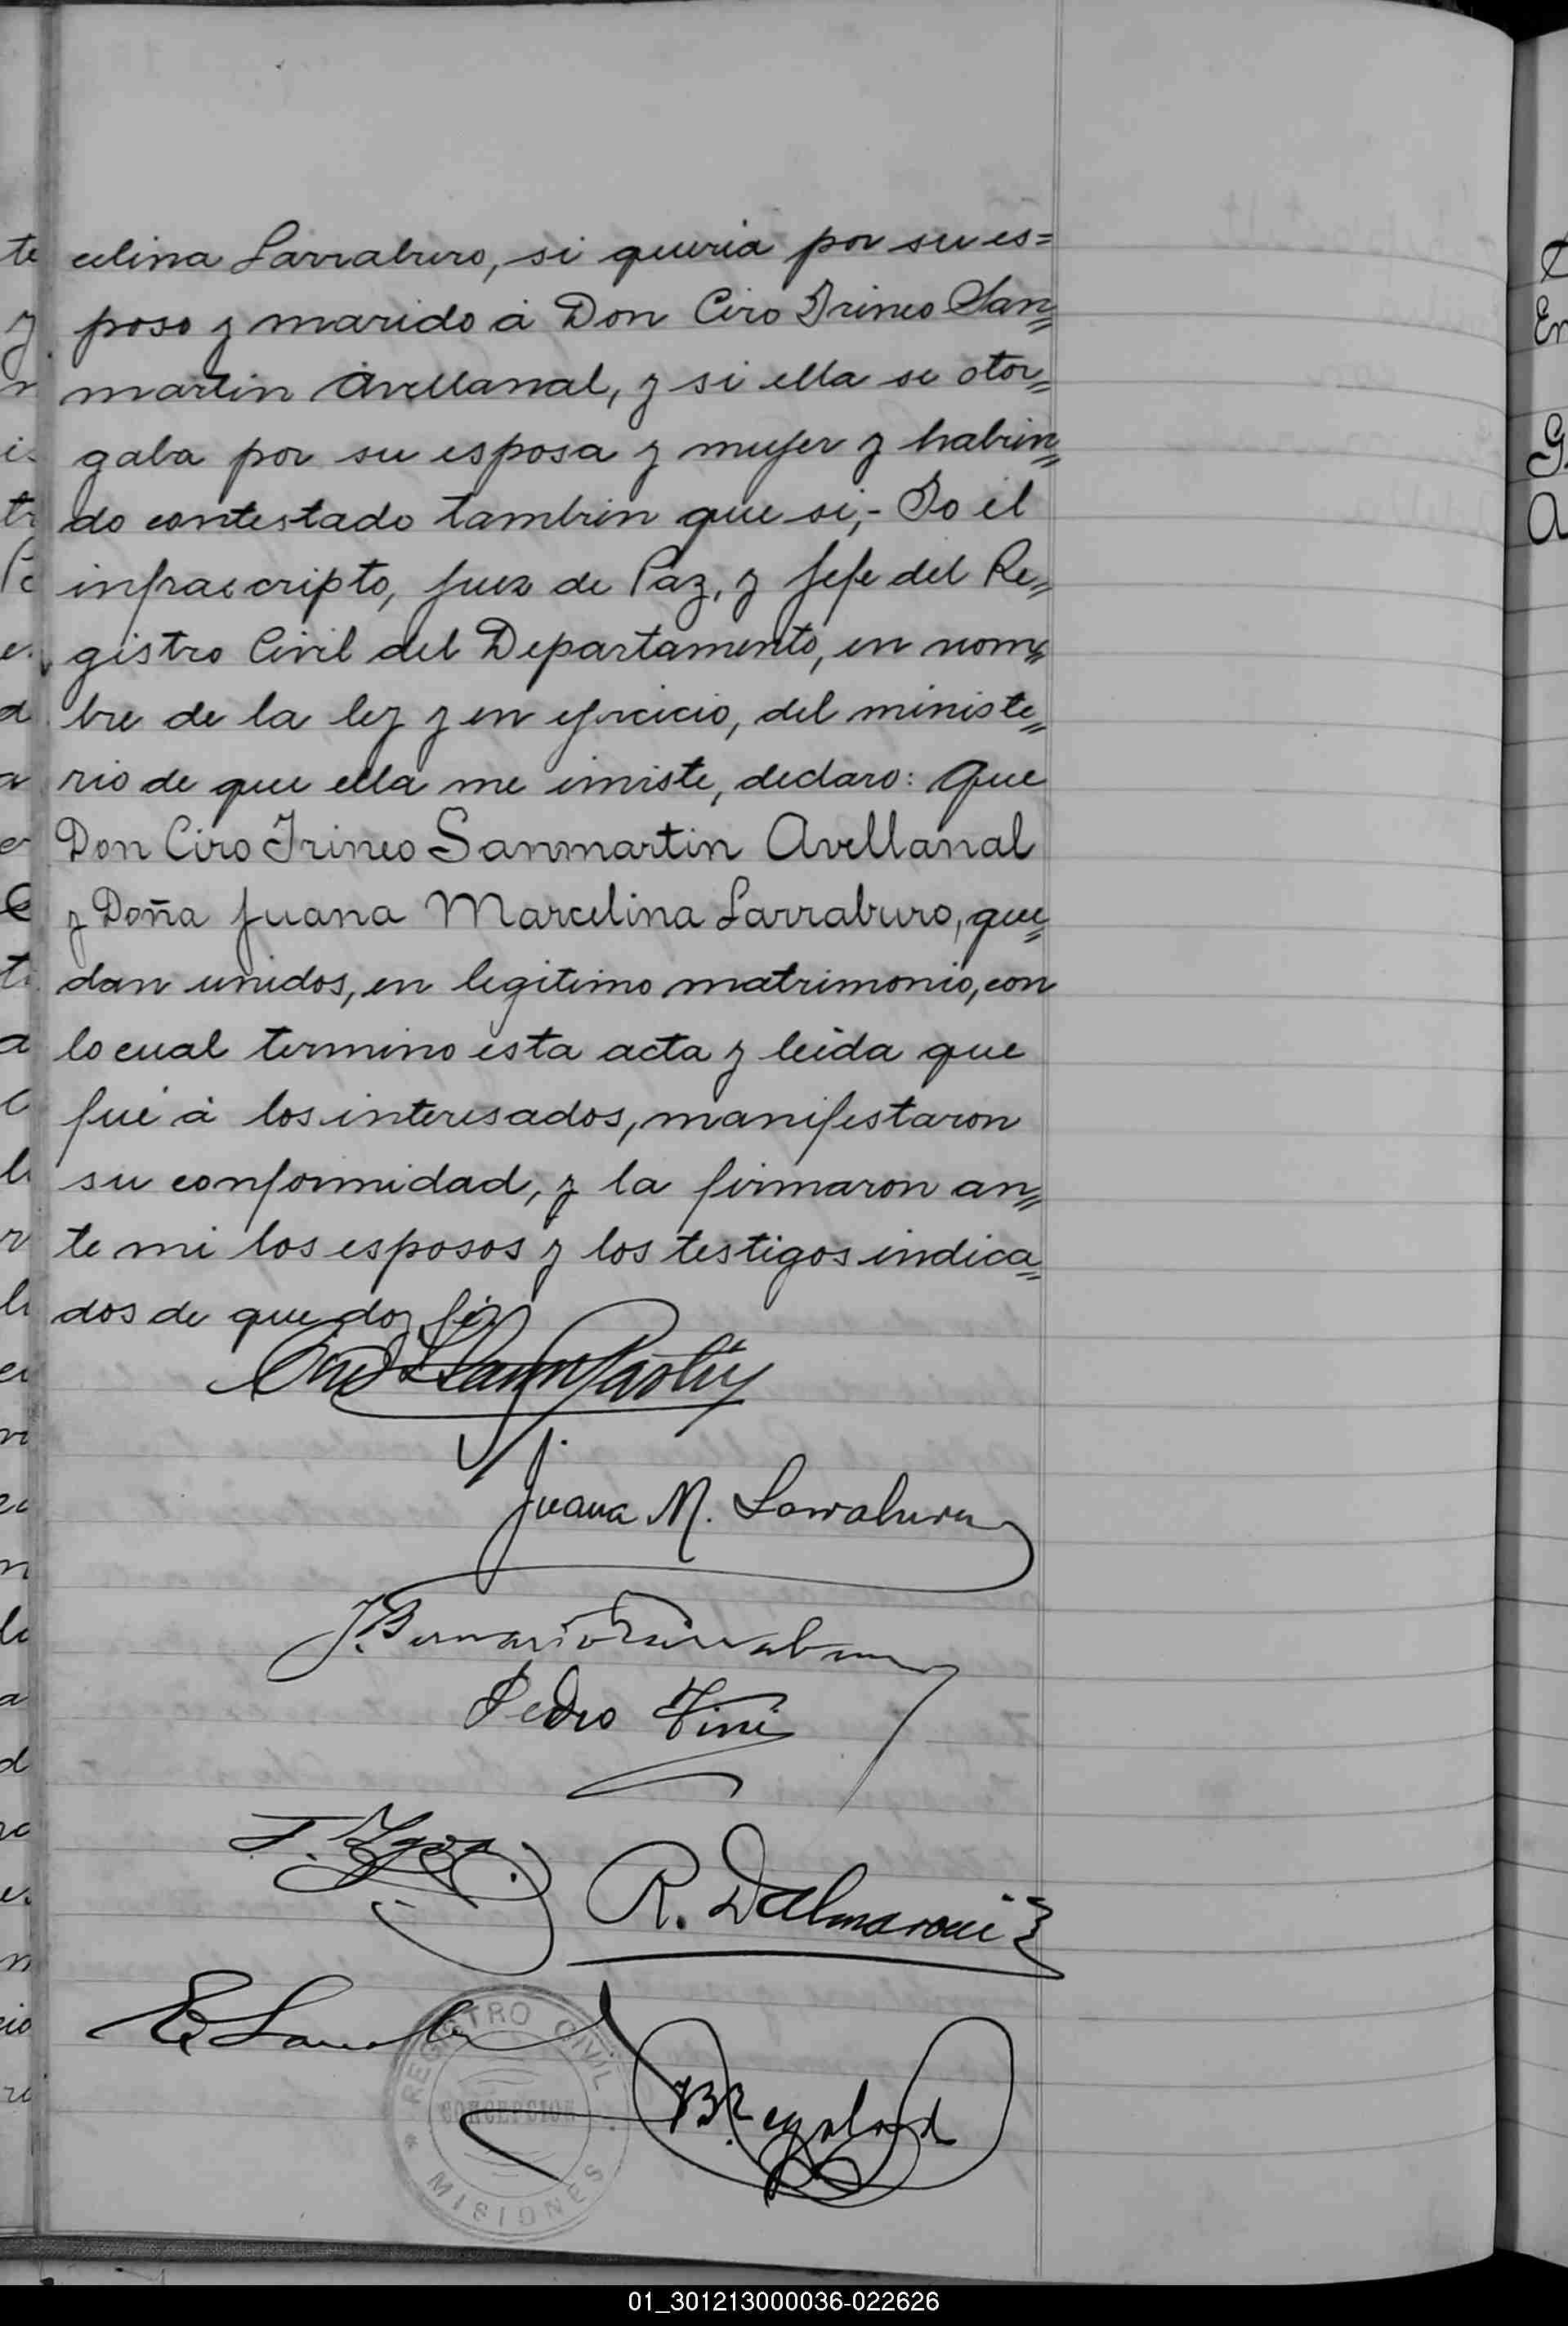 celina Larraburo, si queria por su es=
poso y marido á Don Ciro Irineo San=
martin Avellanal, y si ella se otor=
gaba por su esposa y mujer y habien=
do contestado tambien que si,- Yo el
infraescripto, Juez de Paz, y Jefe del Re=
gistro Civil del Departamento, en nom=
bre de la ley y en ejercicio, del ministe=
rio de que ella me inviste, declaro: Que
Don Ciro Irineo Sanmartin Avellanal
y Doña Juana Marcelina Larraburo, que=
dan unidos, en legitimo matrimonio, con
lo cual termino esta acta y leida que
fué á los interesados, manifestaron
su conformidad, y la firmaron an=
te mi los esposos y los testigos indica=
dos de que doy fé,
Juana M. Larraburu
Pedro Fini
R. Dalmaroni
REGISTRO CIVIL
CONCEPCION
MISIONES
01_301213000036-022626